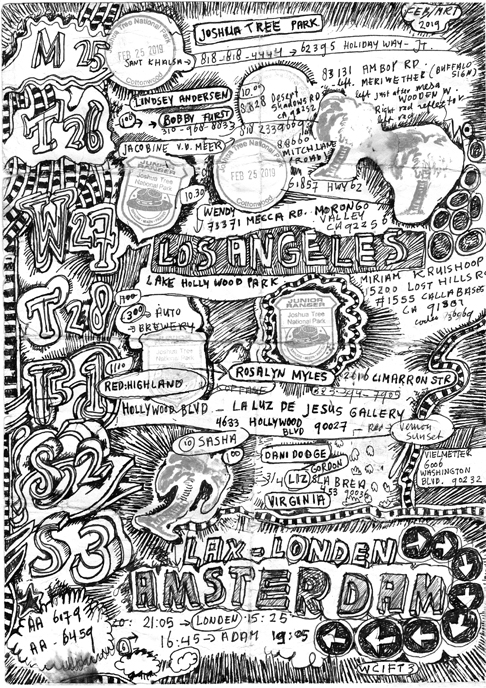 FEB/MRT
2019
M 25
Joshua Tree National Park
FEB 25 2019
Cottonwood
JOSHUA TREE PARK
SANT KHALSA → 818-818-4444 → 62395 HOLIDAY WAY - JT.
83131 AMBOY RD.
left. MERIWETHER (BUFFALO SIGN)
left just after mesa
WOODEN
T 26
LINDSEY ANDERSEN
BOBBY FURST
10.00
Desert
SHADOWS RD
CA 92252
JACOBINE V.D. MEER
Joshua Tree National Park
FEB 25 2019
Cottonwood
JUNIOR RANGER
Joshua Tree
National Park
10.30
61857 HWY 62
W 27
WENDY
MECCA RD. MORONGO
VALLEY
CA 92256
LOS ANGELES
LAKE HOLLYWOOD PARK
MIRIAM KRUISHOOP
15200 LOST HILLS R
#1555 CALLABASAS
CA
T 28
AUTO
→ BREWERY
JUNIOR
RANGER
Joshua Tree
National Park
Joshua Tree
National Park
F-1
1100
RED:HIGHLAND
ROSALYN MYLES
2416 CIMARRON STR
HOLLYWOOD BLVD - LA LUZ DE JESUS GALLERY
4633 HOLLYWOOD
BLVD 90027
Vernon
sunset
S2
10 SASHA
DANI DODGE
GORDON
LIZ
LA BREA
90036
VIRGINIA
VIELMETTER
6006
WASHINGTON
BLVD. 90232
S3
LAX - LONDEN
AMSTERDAM
AA 6179
AA - 6459
21:05 → LONDEN 15:25
16:45 → ADAM 19:05
WCIFT3